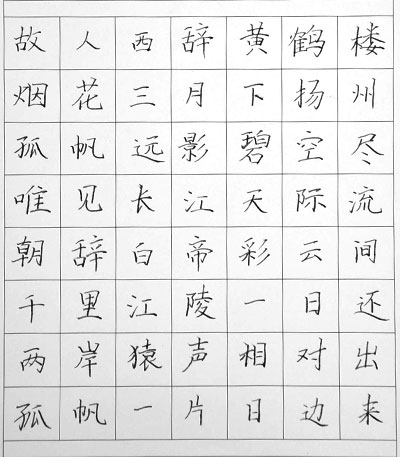 故人西辞黄鹤楼
烟花三月下扬州
孤帆远影碧空尽
唯见长江天际流
朝辞白帝彩云间
千里江陵一日还
两岸猿声相对出
孤帆一片日边来